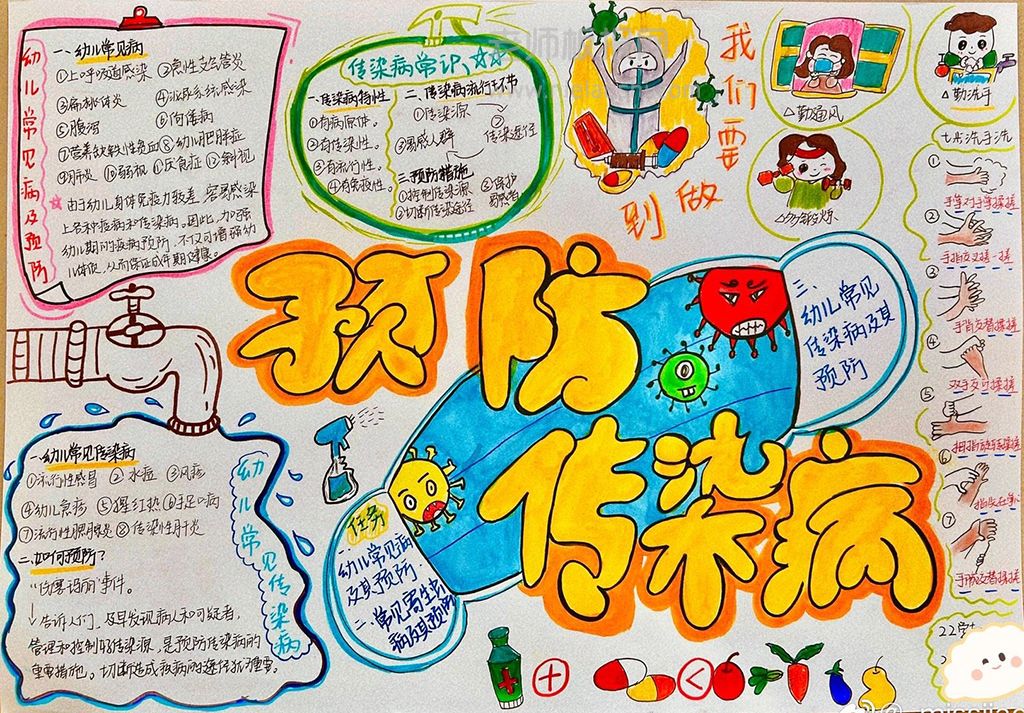 幼儿常见病及预防
一、幼儿常见病
①上呼吸道感染 ②急性支气管炎
③扁桃体炎 ④泌尿系统感染
⑤腹泻 ⑥佝偻病
⑦营养缺铁性贫血 ⑧幼儿肥胖症
⑨肺炎 ⑩弱视 ⑪厌食症 ⑫斜视
☆由于幼儿身体免疫力较差,容易感染
上各种疫病和传染病。因此,加强
幼儿期间疫病预防,不仅可增强幼
儿体质,从而保证成年期健康。
传染病常识☆☆
一、传染病特性
①有病原体。
②有传染性。
③有流行性。
④有免疫性。
二、传染病流行环节
①传染源
②传染途径
③易感人群
三、预防措施
①控制传染源
②切断传染途径
③保护
易感者
我们要
做到
△勤通风
△勤洗手
七步洗手法
①
手掌对手掌搓搓
②
③
手背交替搓搓
④
双手交叉搓搓
⑤
⑥
⑦
预防
传染病
三、
幼儿常见
传染病及其
预防
任务
一、
幼儿常见病
及其预防
二、常见寄生虫
病及其预防
幼儿常见传染病
一、幼儿常见传染病
①流行性感冒 ②水痘 ③风疹
④幼儿急疹 ⑤猩红热 ⑥手足口病
⑦流行性腮腺炎 ⑧传染性肝炎
二、如何预防?
"伤寒玛丽"事件。
↓告诉人们,及早发现病人和可疑者,
管理和控制好传染源,是预防传染病的
重要措施。切断造成疫病的途径很重要。